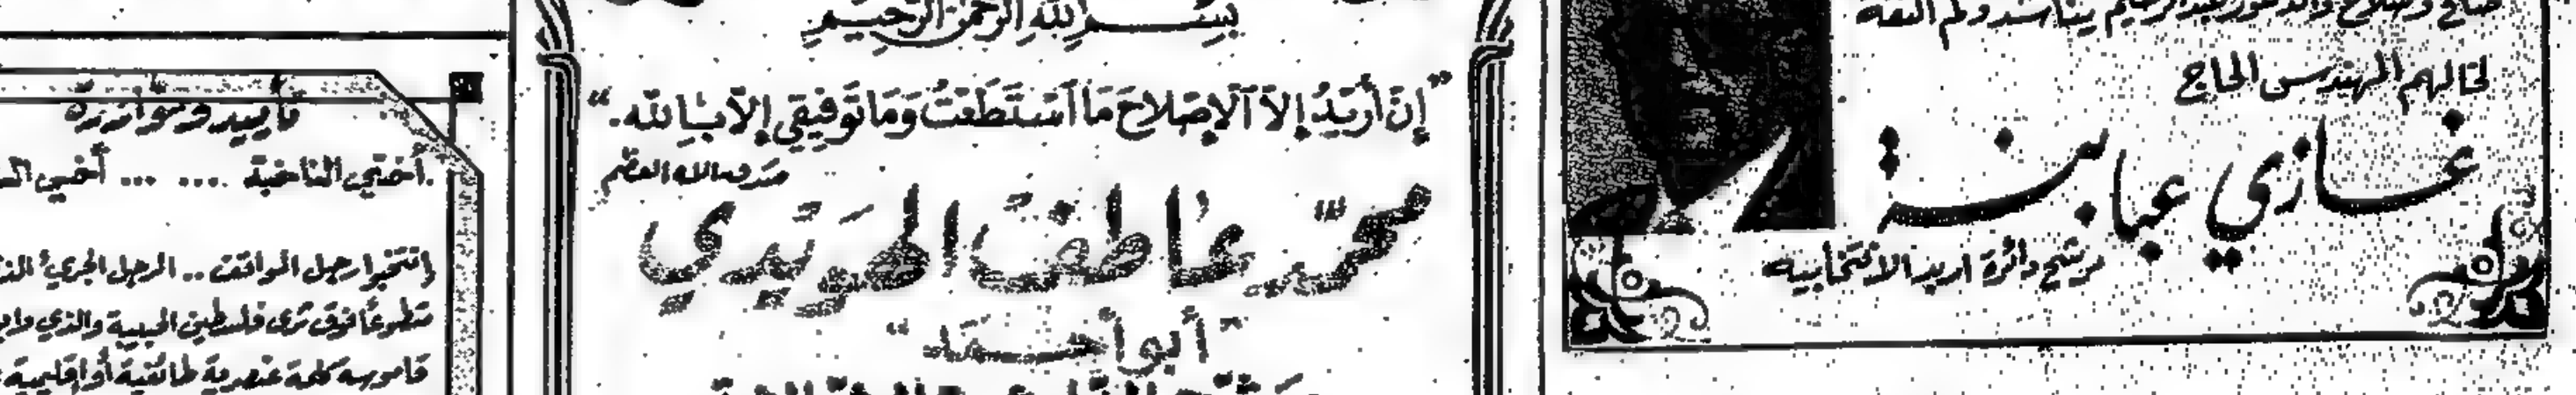 صالح وصلاح والدكتور عبدالرحيم يناشدونكم الثقة
لخالهم المهندس الحاج
غازي عبابنة
مرشح دائرة اربد الانتخابيه
بسم الله الرحمن الرحيم
"إن أريد إلا الإصلاح ما استطعت وما توفيقي إلا بالله."
صدق الله العظيم
محمد عاطف الهريدي
"أبو أحمد"
تأييد ومؤازرة
أختي الناخبة ... ... أخي
انتخبوا رجل المواقف .. الرجل الجريء
متطوعاً فوق ثرى فلسطين الحبيبة والذي
قاموسه كلمة عنصرية طائفية أو إقليمية